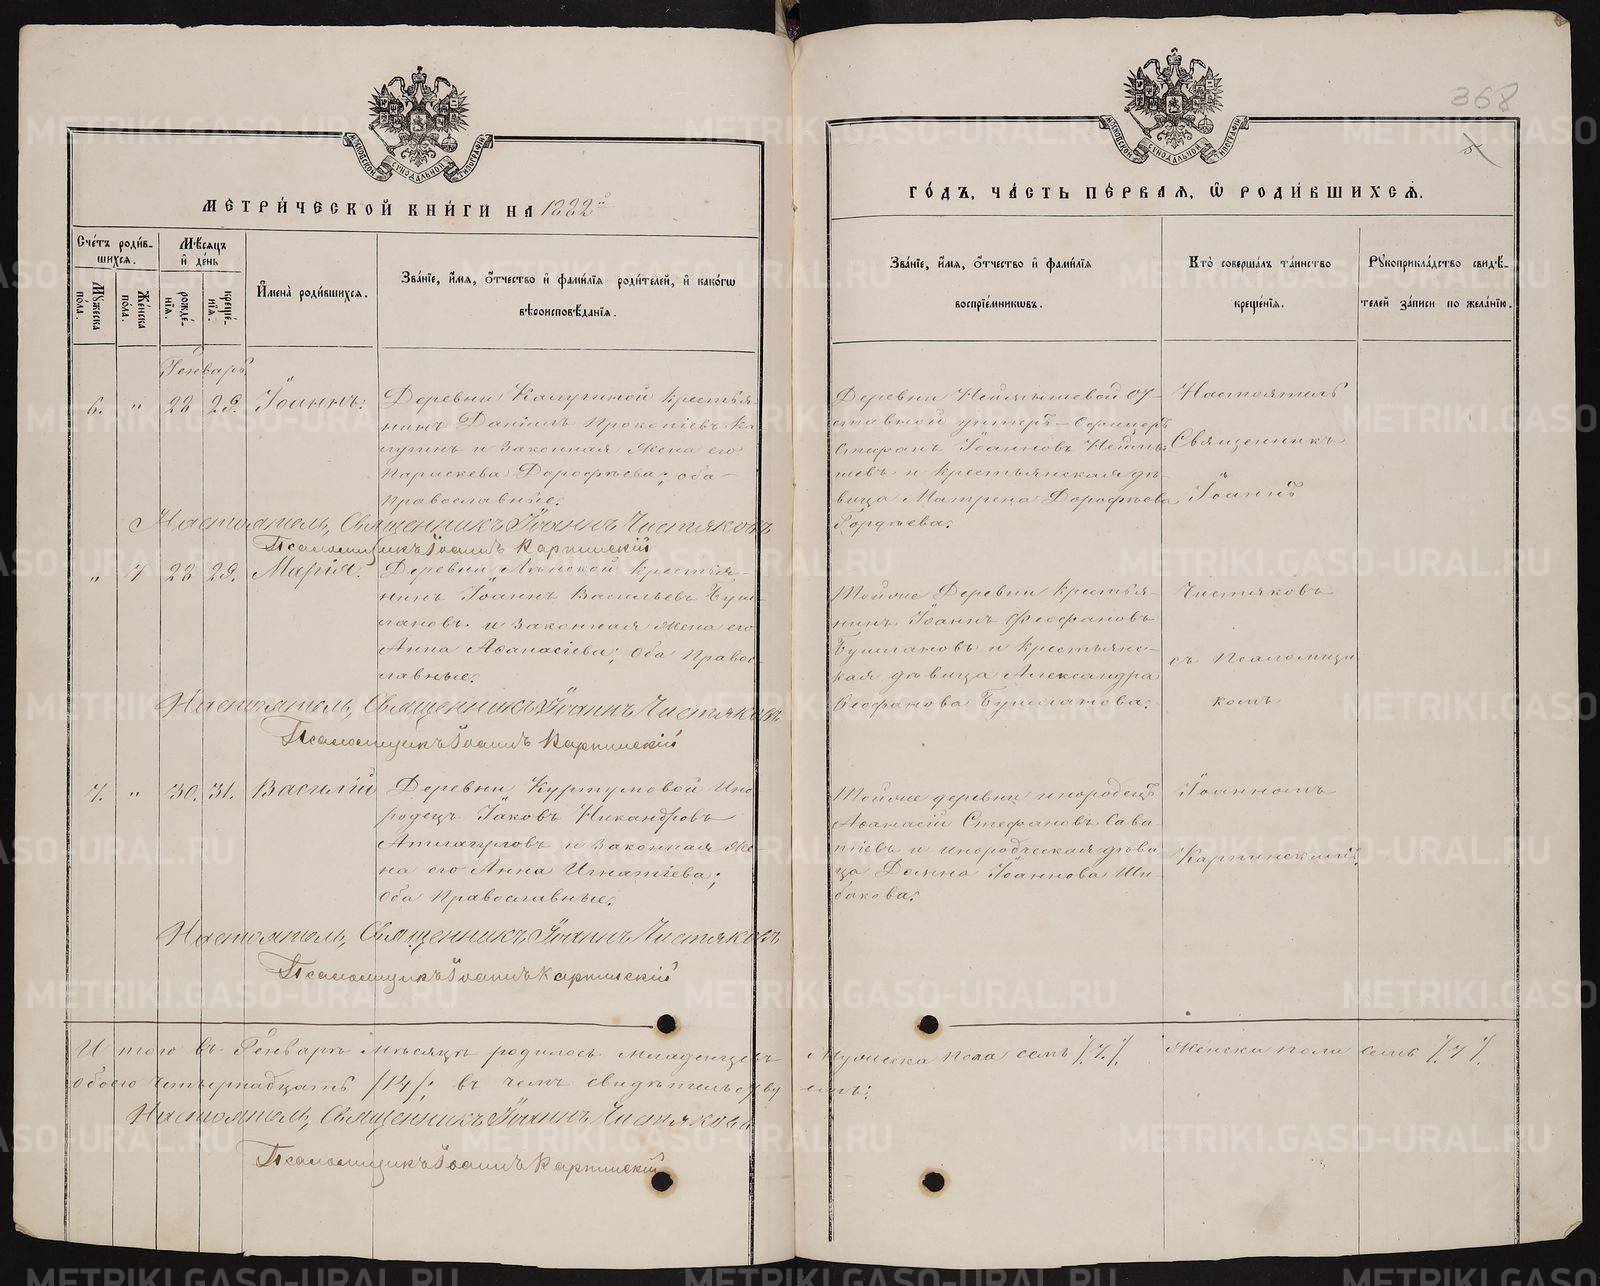 368
5
МОСКОВСКОЙ СѴНОДАЛЬНОЙ ТИПОГРАФІИ
МОСКОВСКОЙ СѴНОДАЛЬНОЙ ТИПОГРАФІИ
МЕТРИ́ЧЕСКОЙ КНИ́ГИ НА 1882й
ГО́ДЪ, ЧА́СТЬ ПЕ́РВАЯ, Ѡ РОДИ́ВШИХСЯ.
Сче́тъ роди́вшихся.
Мꙋжеска пола.
Же́нска по́ла.
Мѣ́сяцъ и де́нь
рожде́нїя.
креще́нїя.
И҆мена̀ роди́вшихся.
Зва́нїе, и҆́мя, о҆́тчество и҆ фами́лїя роди́телей, и҆ како́гѡ вѣроисповѣ́данїя.
Зва́нїе, и҆́мя, о҆́тчество и҆ фами́лїя воспрїе́мникѡвъ.
Кто̀ соверша́лъ та́инство креще́нїя.
Рꙋкоприкла́дство свидѣ́телей за́писи по жела́нїю.
Генварь.
6. " 28 29. Іоаннъ.
Деревни Калугиной крестья-
нинъ Даніилъ Прокопіевъ Ка-
лугинъ и законная жена его
Параскева Дорофѣева; оба
православные.
Деревни Неймышевой от-
ставной унтеръ-офицеръ
Стефанъ Іоанновъ Неймы-
шевъ и крестьянская дѣ-
вица Матрена Дорофѣева
Гордѣева.
Настоятель
Священникъ
Іоаннъ
Настоятель, Священникъ Іоаннъ Чистяковъ
Псаломщикъ Іоаннъ Карпинскій
" 7 28 29. Марія.
Деревни Ленской крестья-
нинъ Іоаннъ Васильевъ Буш-
лановъ и законная жена его
Анна Аѳанасіева; оба право-
славные.
Тойже деревни крестья-
нинъ Іоаннъ Феофановъ
Бушлановъ и крестьянс-
кая дѣвица Александра
Феофанова Бушланова.
Чистяковъ
съ псаломщи
комъ
Настоятель, Священникъ Іоаннъ Чистяковъ
Псаломщикъ Іоаннъ Карпинскій
7. " 30. 31. Василій
Деревни Куртумовой ино
родецъ Іаковъ Никандровъ
и законная же-
на его Анна Игнатіева;
оба православные.
Тойже деревни инородецъ
Аѳанасій Стефановъ Сава-
тіевъ и инородческая дѣви
ца Домна Іоаннова Ши-
бакова.
Іоанномъ
Карпинскимъ
Настоятель, Священникъ Іоаннъ Чистяковъ
Псаломщикъ Іоаннъ Карпинскій
Итого въ Генварѣ мѣсяцѣ родилось младенцевъ мужеска пола семь /7/. женска пола семь /7/.
обоего четырнадцать /14/; въ чемъ свидѣтельству емъ:
Настоятель, Священникъ Іоаннъ Чистяковъ
Псаломщикъ Іоаннъ Карпинскій
METRIKI.GASO-URAL.RU